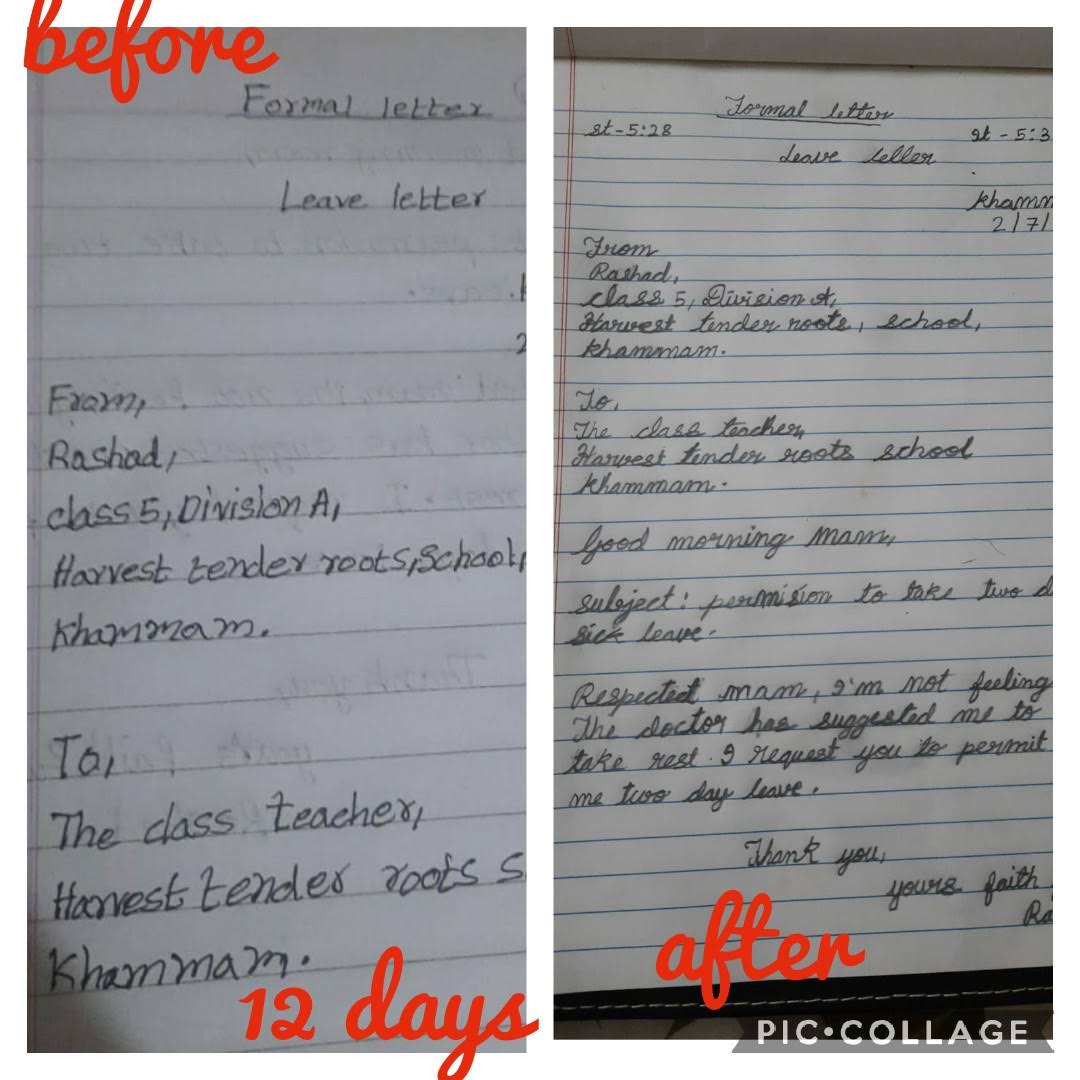 before
Formal letter
Leave letter
From,
Rashad,
class 5, Division A,
Harvest tender roots, School,
Khammam.
To,
The class teacher,
Harvest tender roots S
Khammam.
12 days
Formal letter
st - 5:28
st - 5:3
Leave letter
Khamm
2/7/
From
Rashad,
class 5, Division A,
Harvest tender roots, school,
Khammam.
To,
The class teacher,
Harvest tender roots school
Khammam.
Good morning Mam,
subject: permision to take two d
sick leave.
Respected mam, I'm not feeling
The doctor has suggested me to
take rest. I request you to permit
me two day leave.
Thank you,
yours faith
Ra
after
PIC•COLLAGE